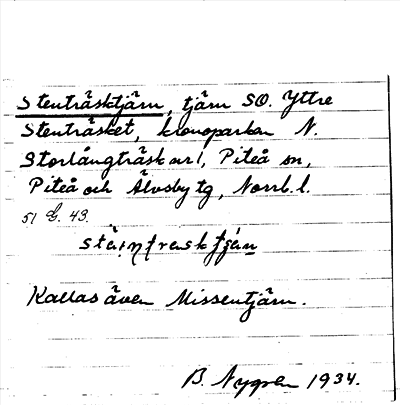 Stenträsktjärn, tjärn SO. Yttre
Stenträsket, kronoparken N.
Storlångträsk arl, Piteå sn,
Piteå och Älvsby tg, Norrb. l.
51 G. 43.
Kallas även Missentjärn.
B. Nygren 1934.